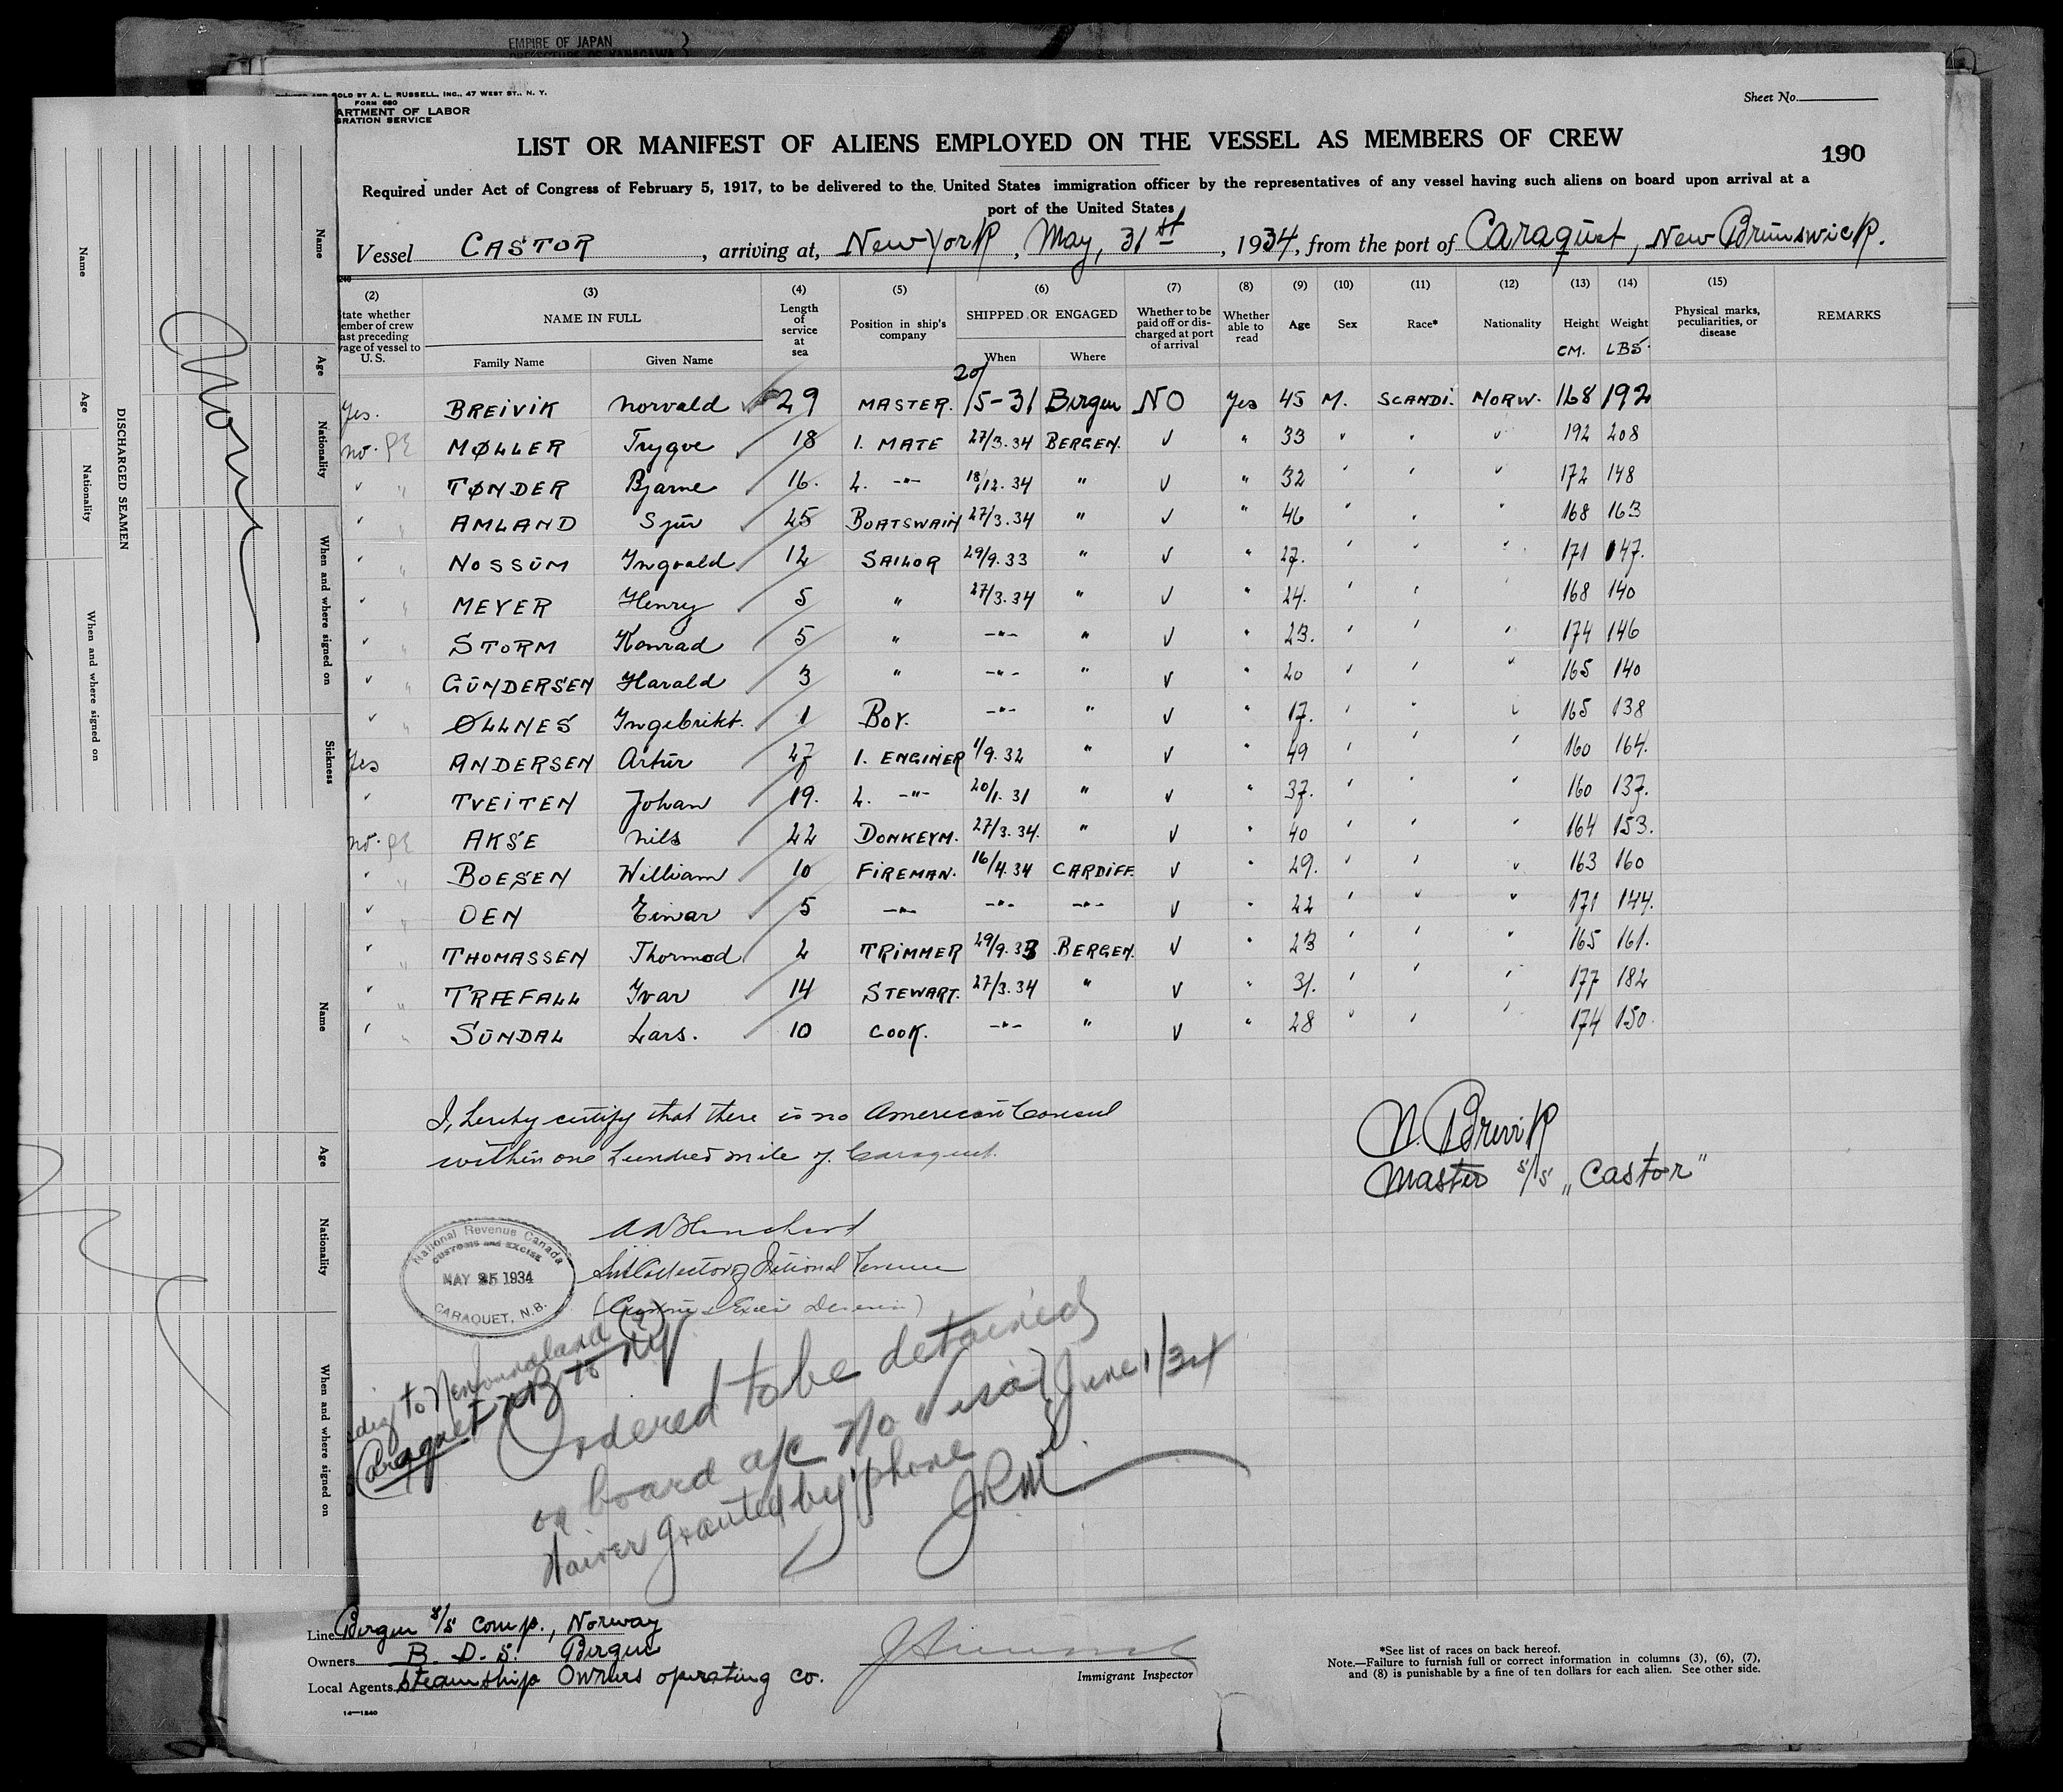 EMPIRE OF JAPAN
PREFECTURE OF KANAGAWA
SOLD BY A. L. RUSSELL, INC., 47 WEST ST., N. Y.
FORM 680
ARTMENT OF LABOR
GRATION SERVICE
Sheet No.
LIST OR MANIFEST OF ALIENS EMPLOYED ON THE VESSEL AS MEMBERS OF CREW
190
Required under Act of Congress of February 5, 1917, to be delivered to the United States immigration officer by the representatives of any vessel having such aliens on board upon arrival at a
port of the United States
Vessel CASTOR, arriving at, New York, May, 31st, 1934, from the port of Caraquet, New Brunswick.
(2) (3) (4) (5) (6) (7) (8) (9) (10) (11) (12) (13) (14) (15)
State whether member of crew last preceding voyage of vessel to U.S. NAME IN FULL Family Name Given Name Length of service at sea Position in ship's company SHIPPED OR ENGAGED When Where Whether to be paid off or discharged at port of arrival Whether able to read Age Sex Race* Nationality Height CM. Weight LBS. Physical marks, peculiarities, or disease REMARKS
Yes. BREIVIK Norvald 29 MASTER. 20/5-31 Bergen NO Yes 45 M. SCANDI. NORW. 168 192
no. MØLLER Trygve 18 1. MATE 27/3.34 BERGEN. √ " 33 192 208
" TØNDER Bjarne 16. 2. -"- 18/12.34 " √ " 32 172 148
" AMLAND Sjur 25 BOATSWAIN 27/3.34 " √ " 46 168 163
" NOSSUM Ingvald 12 SAILOR 29/9.33 " √ " 27. 171 147.
" MEYER Henry 5 " 27/3.34 " √ " 24. 168 140
" STORM Konrad 5 " -"- " √ " 23. 174 146
" GUNDERSEN Harald 3 " -"- " √ " 20 165 140
" ØLLNES Ingebrikt. 1 BOY. -"- " √ " 17. 165 138
Yes ANDERSEN Artur 27 1. ENGINER 1/9.32 " √ " 49 160 164.
" TVEITEN Johan 19. 2. -"- 20/1.31 " √ " 37. 160 137.
no. AKSE Nils 22 DONKEYM. 27/3.34. " √ " 40 164 153.
" BOESEN William 10 FIREMAN. 16/4.34 CARDIFF √ " 29. 163 160
" OEN Einar 5 -"- -"- -"- √ " 22 171 144.
" THOMASSEN Thormod 2 TRIMMER 29/9.33 BERGEN. √ " 23 165 161.
" TRÆFALL Ivar 14 STEWART. 27/3.34 " √ " 31. 177 182
" SUNDAL Lars. 10 COOK. -"- " √ " 28 174 150
I, hereby certify that there is no American Consul
within one hundred mile of Caraquet.
N. Breivik
Master s/s „Castor"
National Revenue Canada
CUSTOMS and EXCISE
MAY 25 1934
CARAQUET, N.B.
Sub Collector of National Revenue
(Customs & Excise Division)
to Newfoundland
Caraquet NB to NY
Ordered to be detained
on board a/c No visa June 1/34
Waiver granted by 'phone
JRM
Line Bergen s/s comp., Norway
Owners B. D. S. Bergen
Local Agents Steamship Owners operating co.
Immigrant Inspector
*See list of races on back hereof.
Note.—Failure to furnish full or correct information in columns (3), (6), (7),
and (8) is punishable by a fine of ten dollars for each alien. See other side.
14—1240
Name
Age
Nationality
When and where signed on
DISCHARGED SEAMEN
None
Name
Age
Nationality
When and where signed on
Sickness
Name
Age
Nationality
When and where signed on